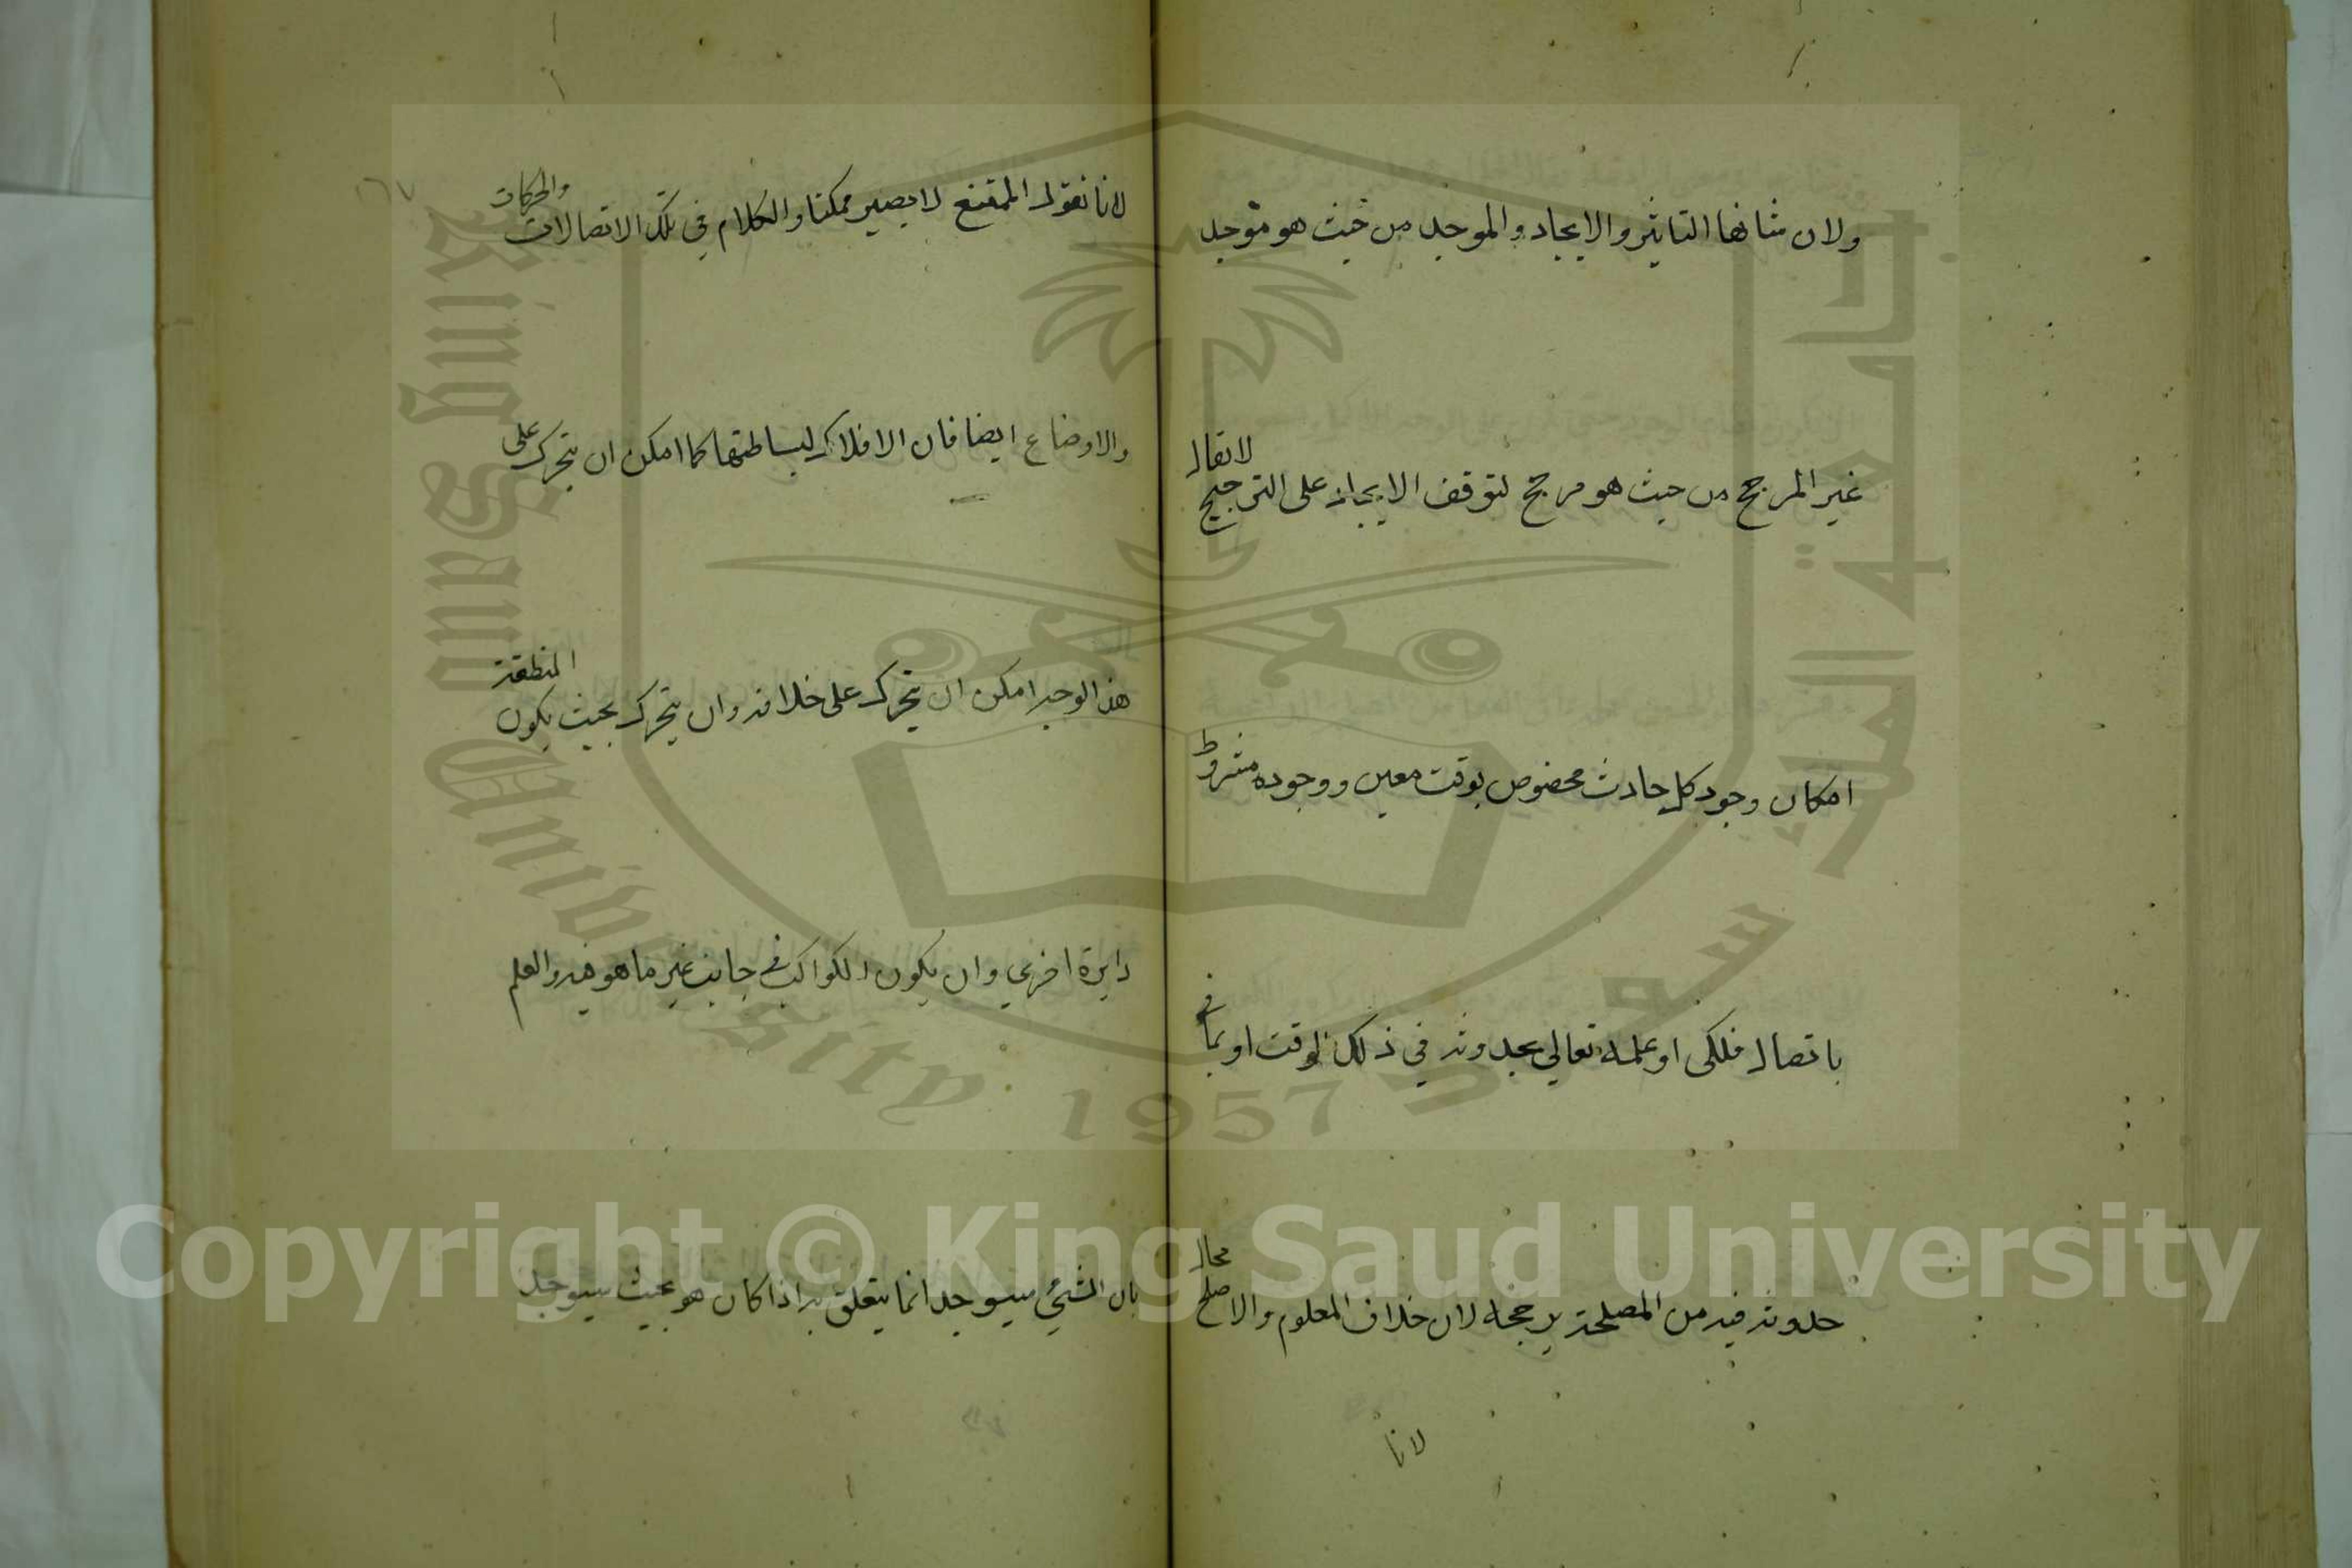 ولان شانها التاثير والايجاد والموجد من حيث هو موجد
غير المرجح من حيث هو مرجح لتوقف الايجاد على الترجيح لا يقال
امكان وجود كل حادث مخصوص بوقت معين ووجوده مشروط
باتصال فلكى او علمه تعالي بحدوثه في ذلك الوقت او بما في
حدوثه فيه من المصلحة يرجحه لان خلاف المعلوم والاصلح محال
لانا
١٦٧
لانا نقول الممتنع لا يصير ممكنا والكلام في تلك الاتصالات والحركات
والاوضاع ايضا فان الافلاك لبساطتها كما امكن ان يتحرك على
هذا الوجه امكن ان يتحرك على خلافه وان يتحرك بحيث يكون المنطقة
دايرة اخري وان يكون الكواكب في جانب غير ما هو فيه والعلم
بان الشيئ سيوجد انما يتعلق به اذا كان هو بحيث سيوجد
King Saud University 1957
جامعة الملك سعود
Copyright © King Saud University